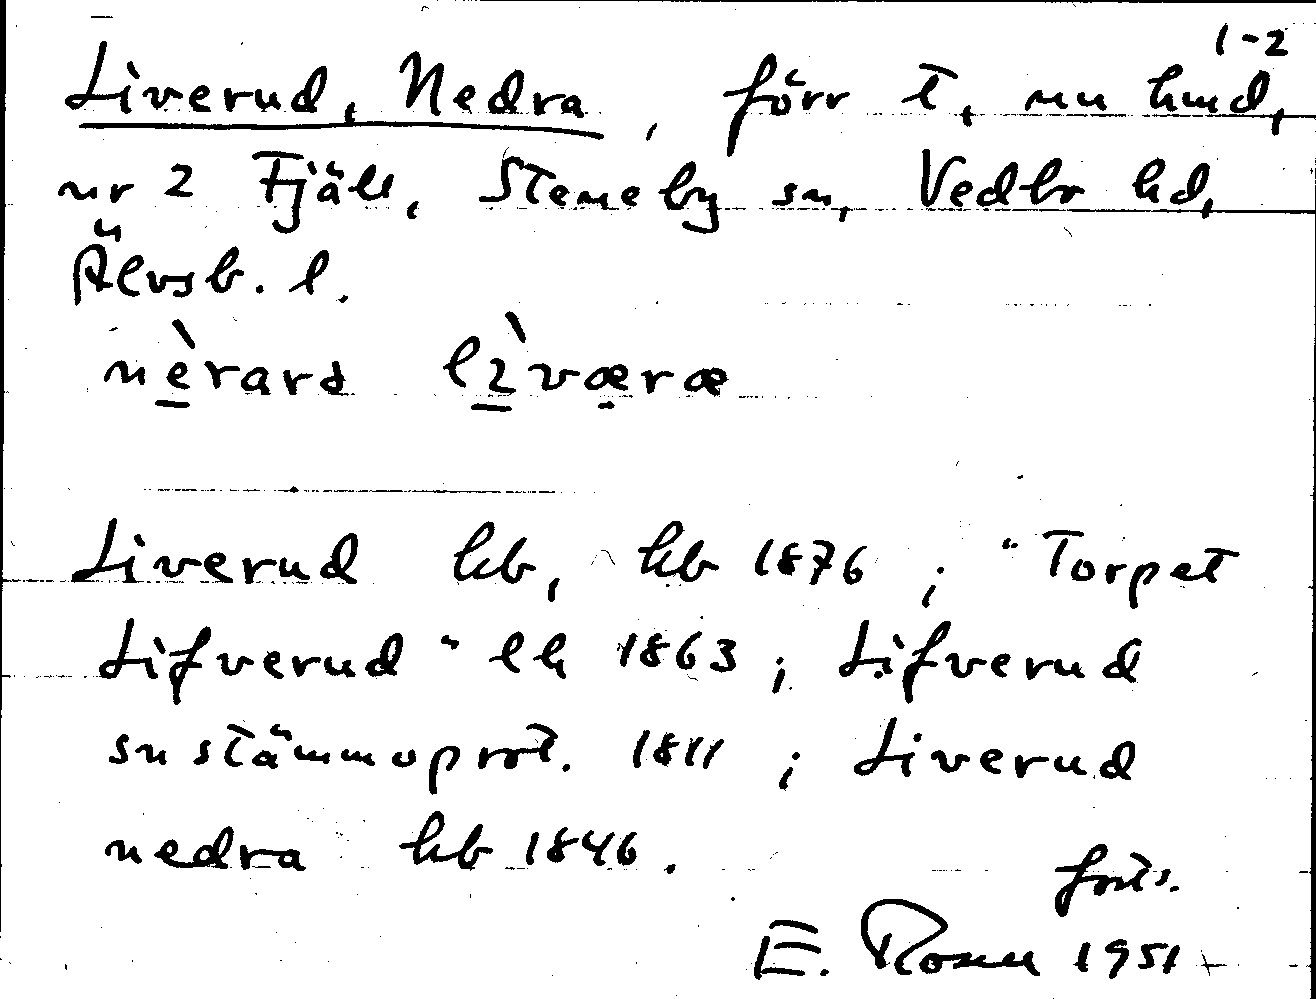 1-2
Liverud, Nedra, förr t, nu hmd,
nr 2 Fjäll, Steneby sn, Vedbo hd,
Älvsb. l.
nèrard lìværæ
Liverud kb, hb 1876; "Torpet
Lifverud" lh 1863; Lifverud
sn stämmoprot. 1811; Liverud
nedra hb 1846.
forts.
E. Rosen 1951